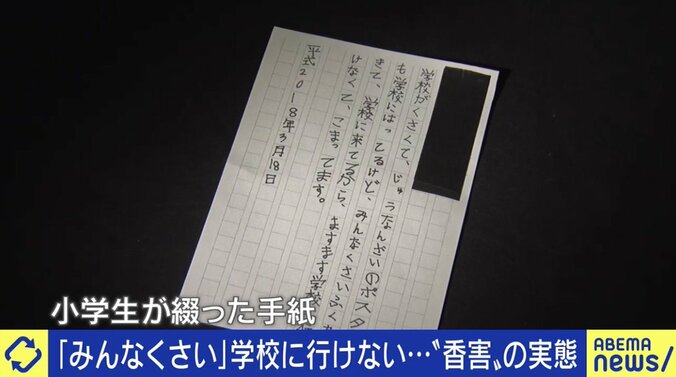 ABEMA NEWS
学校がくさくて、じゅうなんざいのポスタ
も学校にはってるけど、みんなくさいふく
きて、学校に来てるから、ますます学校
けなくて、こまってます。
平式2018年3月18日
小学生が綴った手紙
「みんなくさい」学校に行けない…〝香害〟の実態
ABEMA
NEWS/